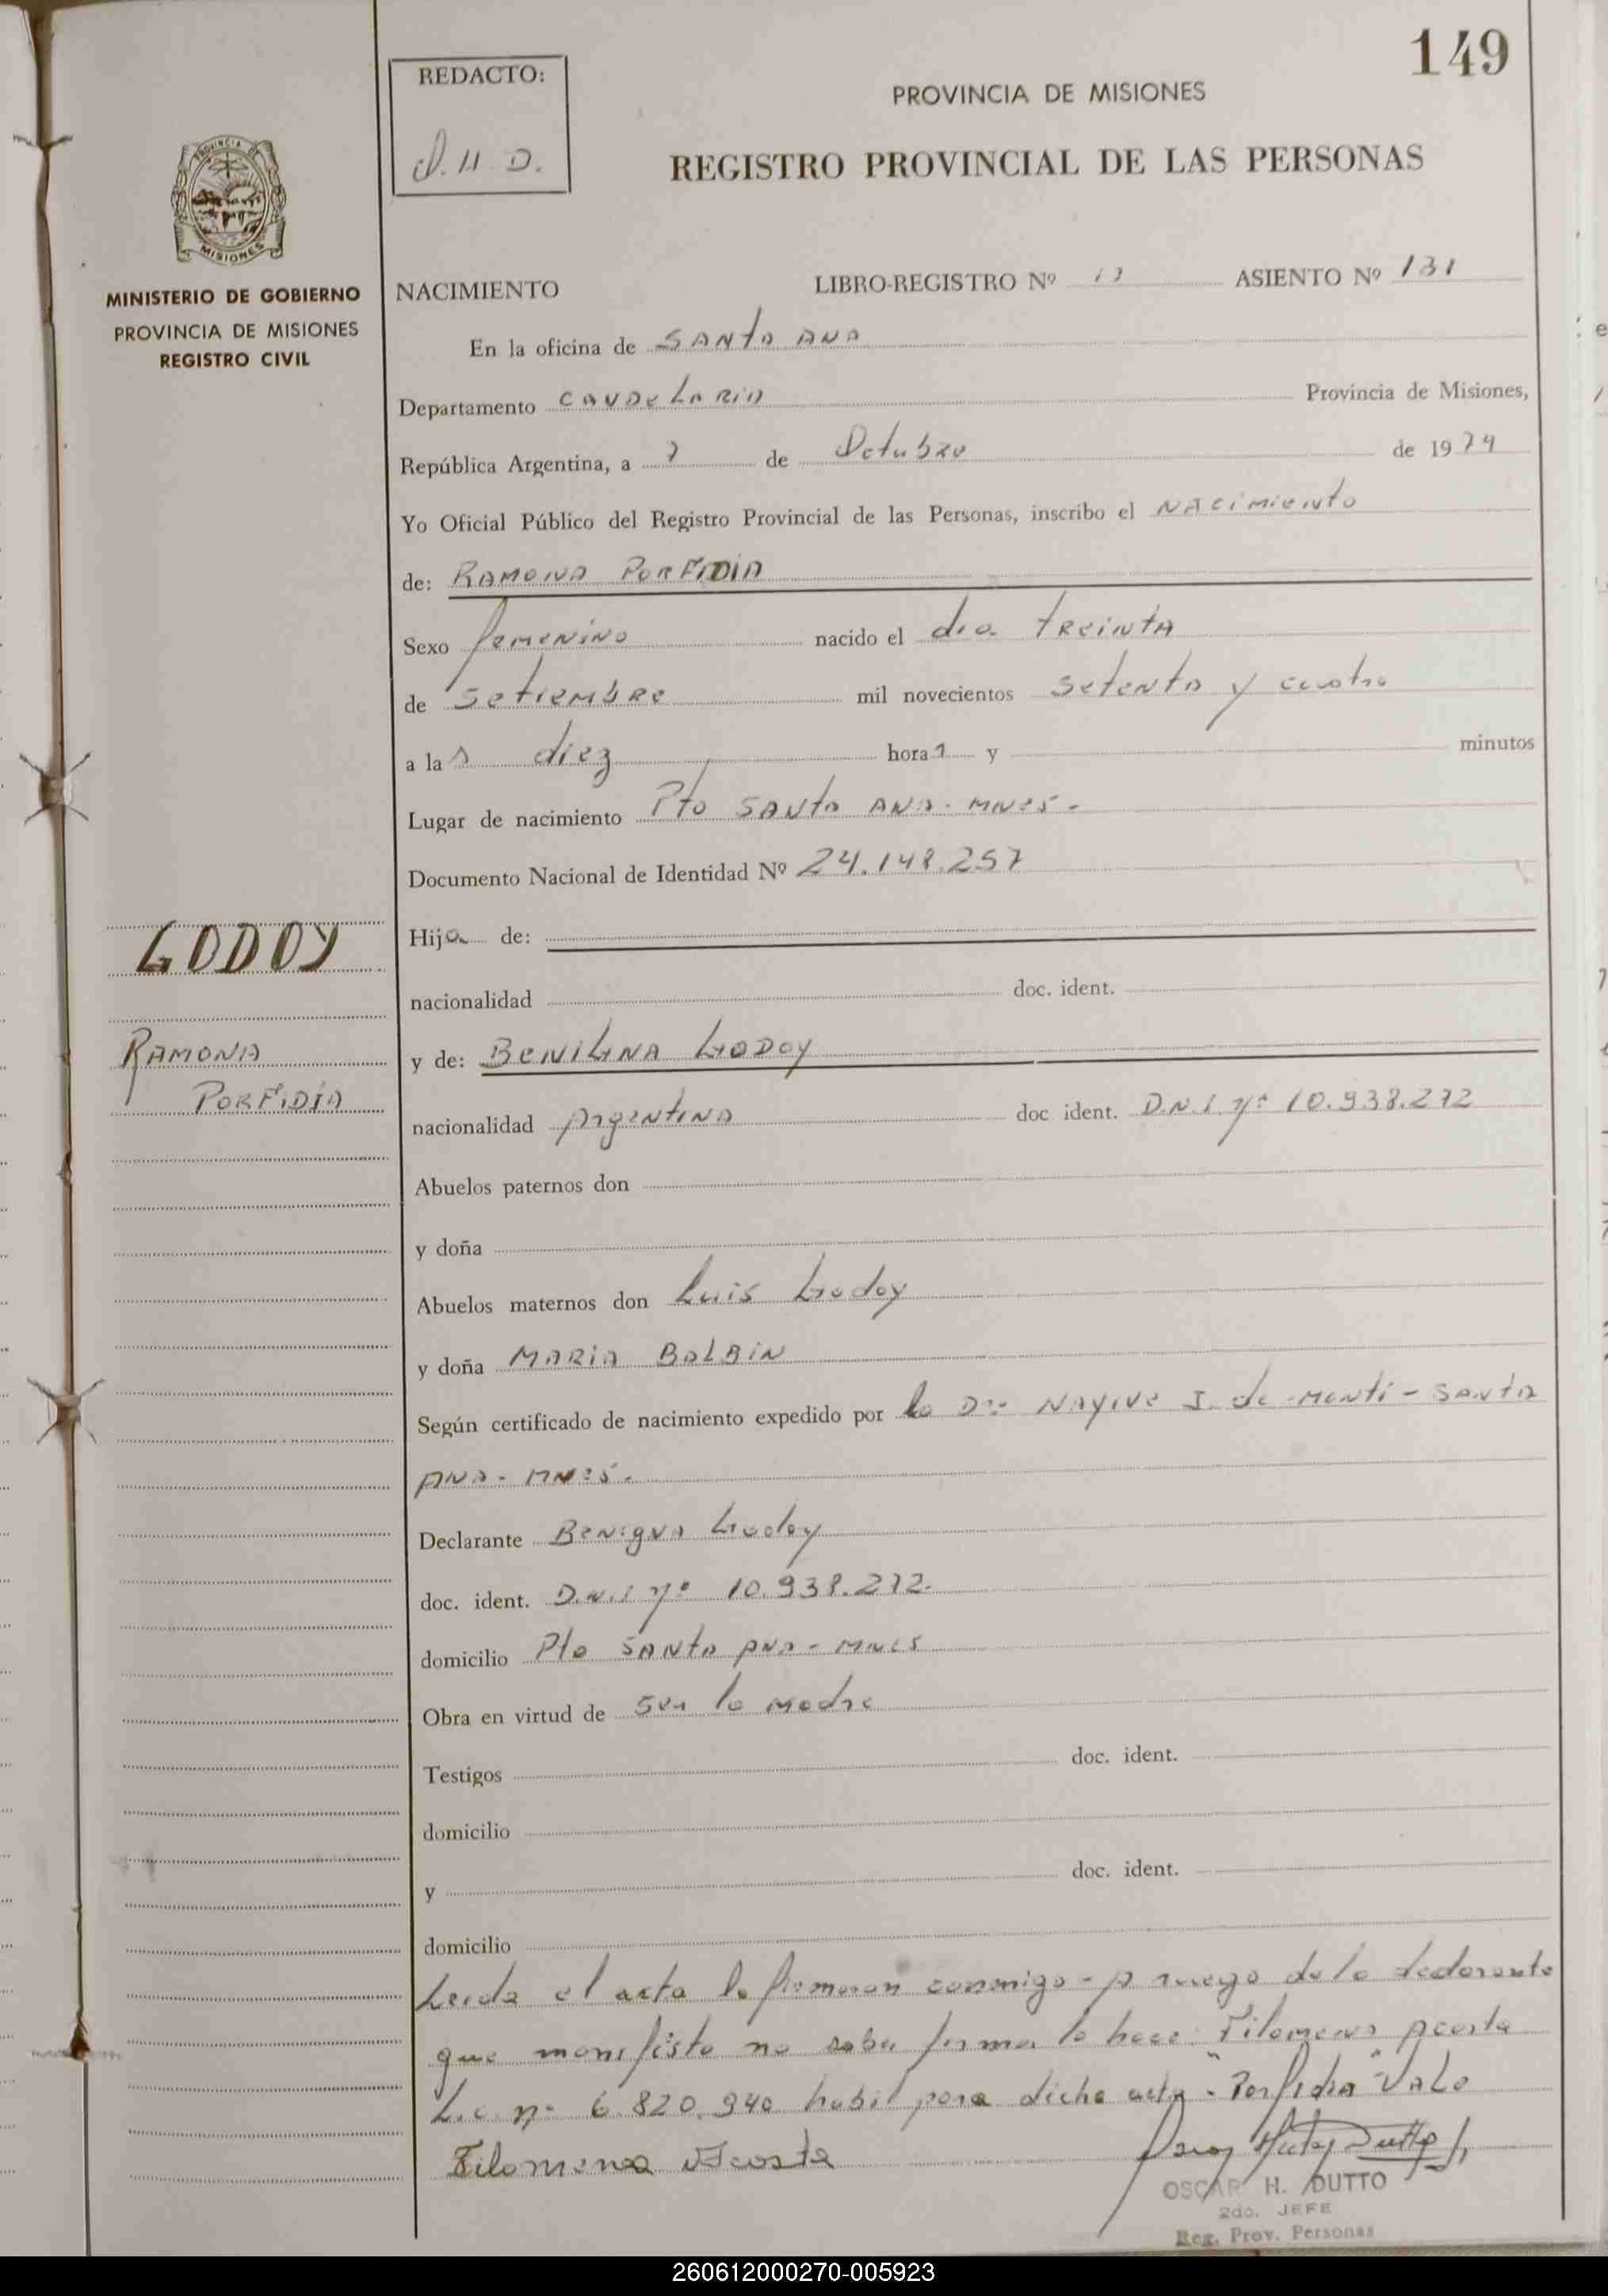 149
REDACTO:
O.H.D.
PROVINCIA DE MISIONES
REGISTRO PROVINCIAL DE LAS PERSONAS
PROVINCIA DE
MISIONES
MINISTERIO DE GOBIERNO
PROVINCIA DE MISIONES
REGISTRO CIVIL
NACIMIENTO LIBRO-REGISTRO Nº 13 ASIENTO Nº 131
En la oficina de SANTA ANA
Departamento CANDELARIA Provincia de Misiones,
República Argentina, a 7 de Octubre de 1974
Yo Oficial Público del Registro Provincial de las Personas, inscribo el NACIMIENTO
de: RAMONA PORFIDIA
Sexo femenino nacido el día TREINTA
de SETIEMBRE mil novecientos setenta y cuatro
a las diez horas y minutos
Lugar de nacimiento Pto SANTA ANA - MNES -
Documento Nacional de Identidad Nº 24.148.257
GODOY
Hija de:
nacionalidad doc. ident.
RAMONA
PORFIDIA
y de: BENIGNA GODOY
nacionalidad Argentina doc ident. D.N.I. Nº 10.938.272
Abuelos paternos don
y doña
Abuelos maternos don Luis Godoy
y doña MARIA BALBIN
Según certificado de nacimiento expedido por la Dra NAYIVE I. de MONTI - SANTA
ANA - MNES -
Declarante Benigna Godoy
doc. ident. D.N.I Nº 10.938.272.
domicilio Pto SANTA ANA - MNES
Obra en virtud de ser la madre
Testigos doc. ident.
domicilio
y doc. ident.
domicilio
Leida el acta la firmaron conmigo - A ruego de la declarante
que manifiesta no saber firmar lo hace Filomena Acosta
L.C. nº 6.820.940 habil para dicho acto - "Porfidia" VALE
Filomena Acosta
OSCAR H. DUTTO
2do. JEFE
Reg. Prov. Personas
260612000270-005923